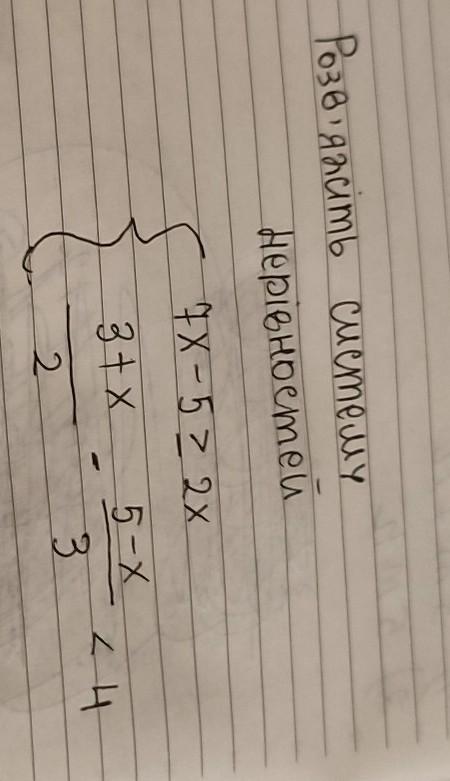 Розв'яжіть систему
нерівностей
{ 7x - 5 ≥ 2x
3+x/2 - 5-x/3 < 4